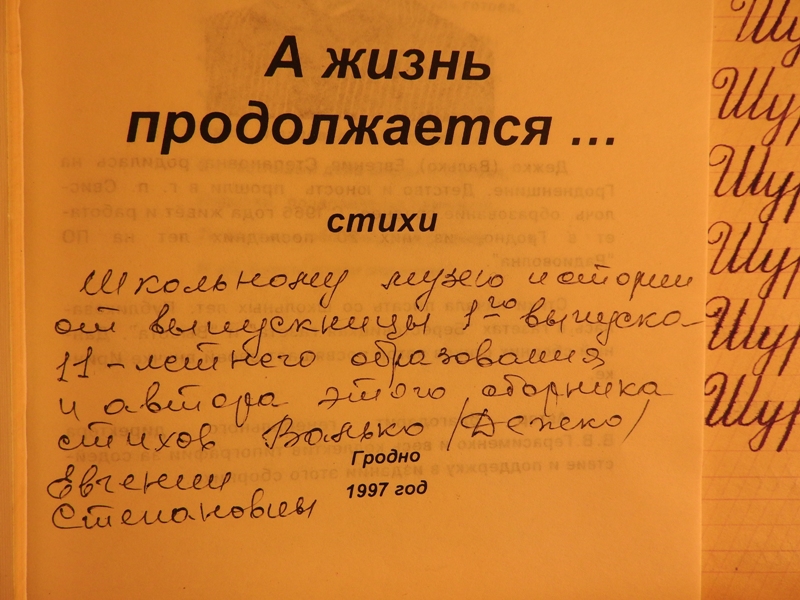 А жизнь
продолжается ...
стихи
Школьному музею истории
от выпускницы 1-го выпуска
11-летнего образования
и автора этого сборника
стихов Валько (Дежко)
Гродно
Евгении
1997 год
Степановны
Шур
Шур
Шур
Шур
Шур
Шур